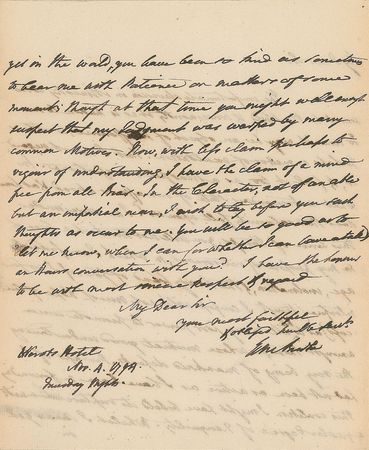 yet in the world, you have been so kind as sometimes
to hear me with Patience on matters of some
moment; though at that time you might well enough
suspect that my Judgment was warped by many
common Motives. Now, with less claim perhaps to
vigour of understanding, I have the claim of a mind
free from all Bias. In the Character, not of an able
but an impartial man, I wish to lay before you such
thoughts as occur to me. you will be so good as to
let me know, when I can (or whether I can have at all)
an Hours conversation with you? I have the honour
to be with most sincere respect & regard
My Dear Sir
your most faithful
& obliged humble Servt
Edm Burke
Nerots Hotel
Nov. 4. 1794.
Tuesday Night